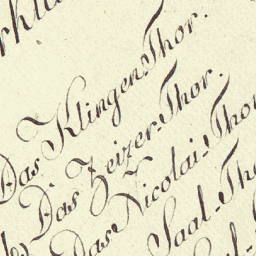 Das Klingen-Thor.
Das Zeizer-Thor.
Das Nicolai-Thor
Saal-Th